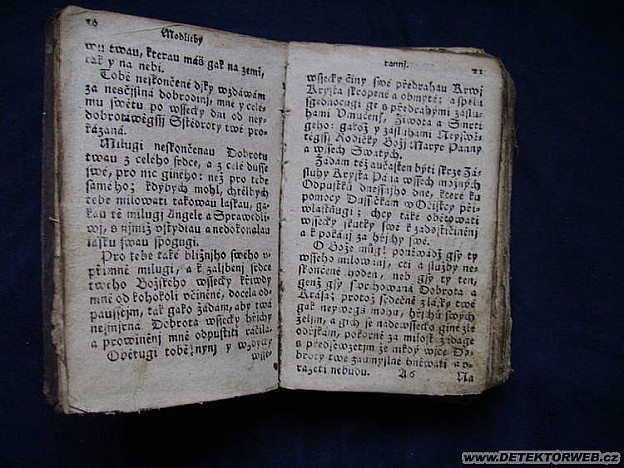 20
Modlitby
wu twau, kterau máš gak na zemi,
tak y na nebi.
Tobě neskončené dyky wzdáwám
za nesčjslná dobrodinj, mně y cele-
mu swětu po wssecky dni od ney-
dobrotiwěgssj Sstědroty twé pro-
kázaná.
Milugi neskončenau Dobrotu
twau z celeho srdce, a z celé dusse
swé, pro nic giného: než pro tebe
samého; kdybych mohl, chtělbych
tebe milowati takowau laskau, ga-
kau tě milugj Angele a Sprawedli-
wj, s njmiž wsskydlau a nedokonalau
lásku swau spogugi.
Pro tebe také bližnjho swého u-
přjmně milugi, a k zaljbenj srdce
twého Božského wssecky křiwdy
mně od kohokoli včiněné, docela od-
pausstjm, tak gako žádám, aby twá
nesmjrná Dobrota wssecky hřjchy
a prowiněnj mně odpustiti ráčila.
Obětugi tobě nynj y wždycky
wsse-
rannj.
21
wssecky činy swé předrahau Krwj
Krysta skropené a obmyté: a spolu
sgednocugi ge s předrahými záslu-
hami Vmučenj, Žiwota a Smrti
geho: gakož y záslihami Neyswě-
těgssj Rodičky Božj Marye Panny
a wssech Swatých.
Žádám též aučasten býti skrze Zá-
sluhy Krysta Pána wssech možných
Odpustků dnessnjho dne, které ku
pomocy Dussičkám w Očistcy při-
wlastňugi; chcy také obětowati
wssecky skutky swé k zadostiučiněnj
a k pokánj za hřjchy swé.
O Bože můg; poněwádž gsy ty
wsseho milowánj, cti a služby ne-
skončeně hoden, neb gsy ty ten,
genž gsy swrchowaná Dobrota a
Krása; protož srdečně zlásky twé
gak neywjc mohu, hřjchů swých
željm, a gich se nadewssecko giné zle
odřjkám, pokorně za milost žádage
s předsewzetjm že nikdy wjce Do-
broty twé zaumyslně hněwati a v-
rážeti nebudu.
A6
Na
WWW.DETEKTORWEB.CZ